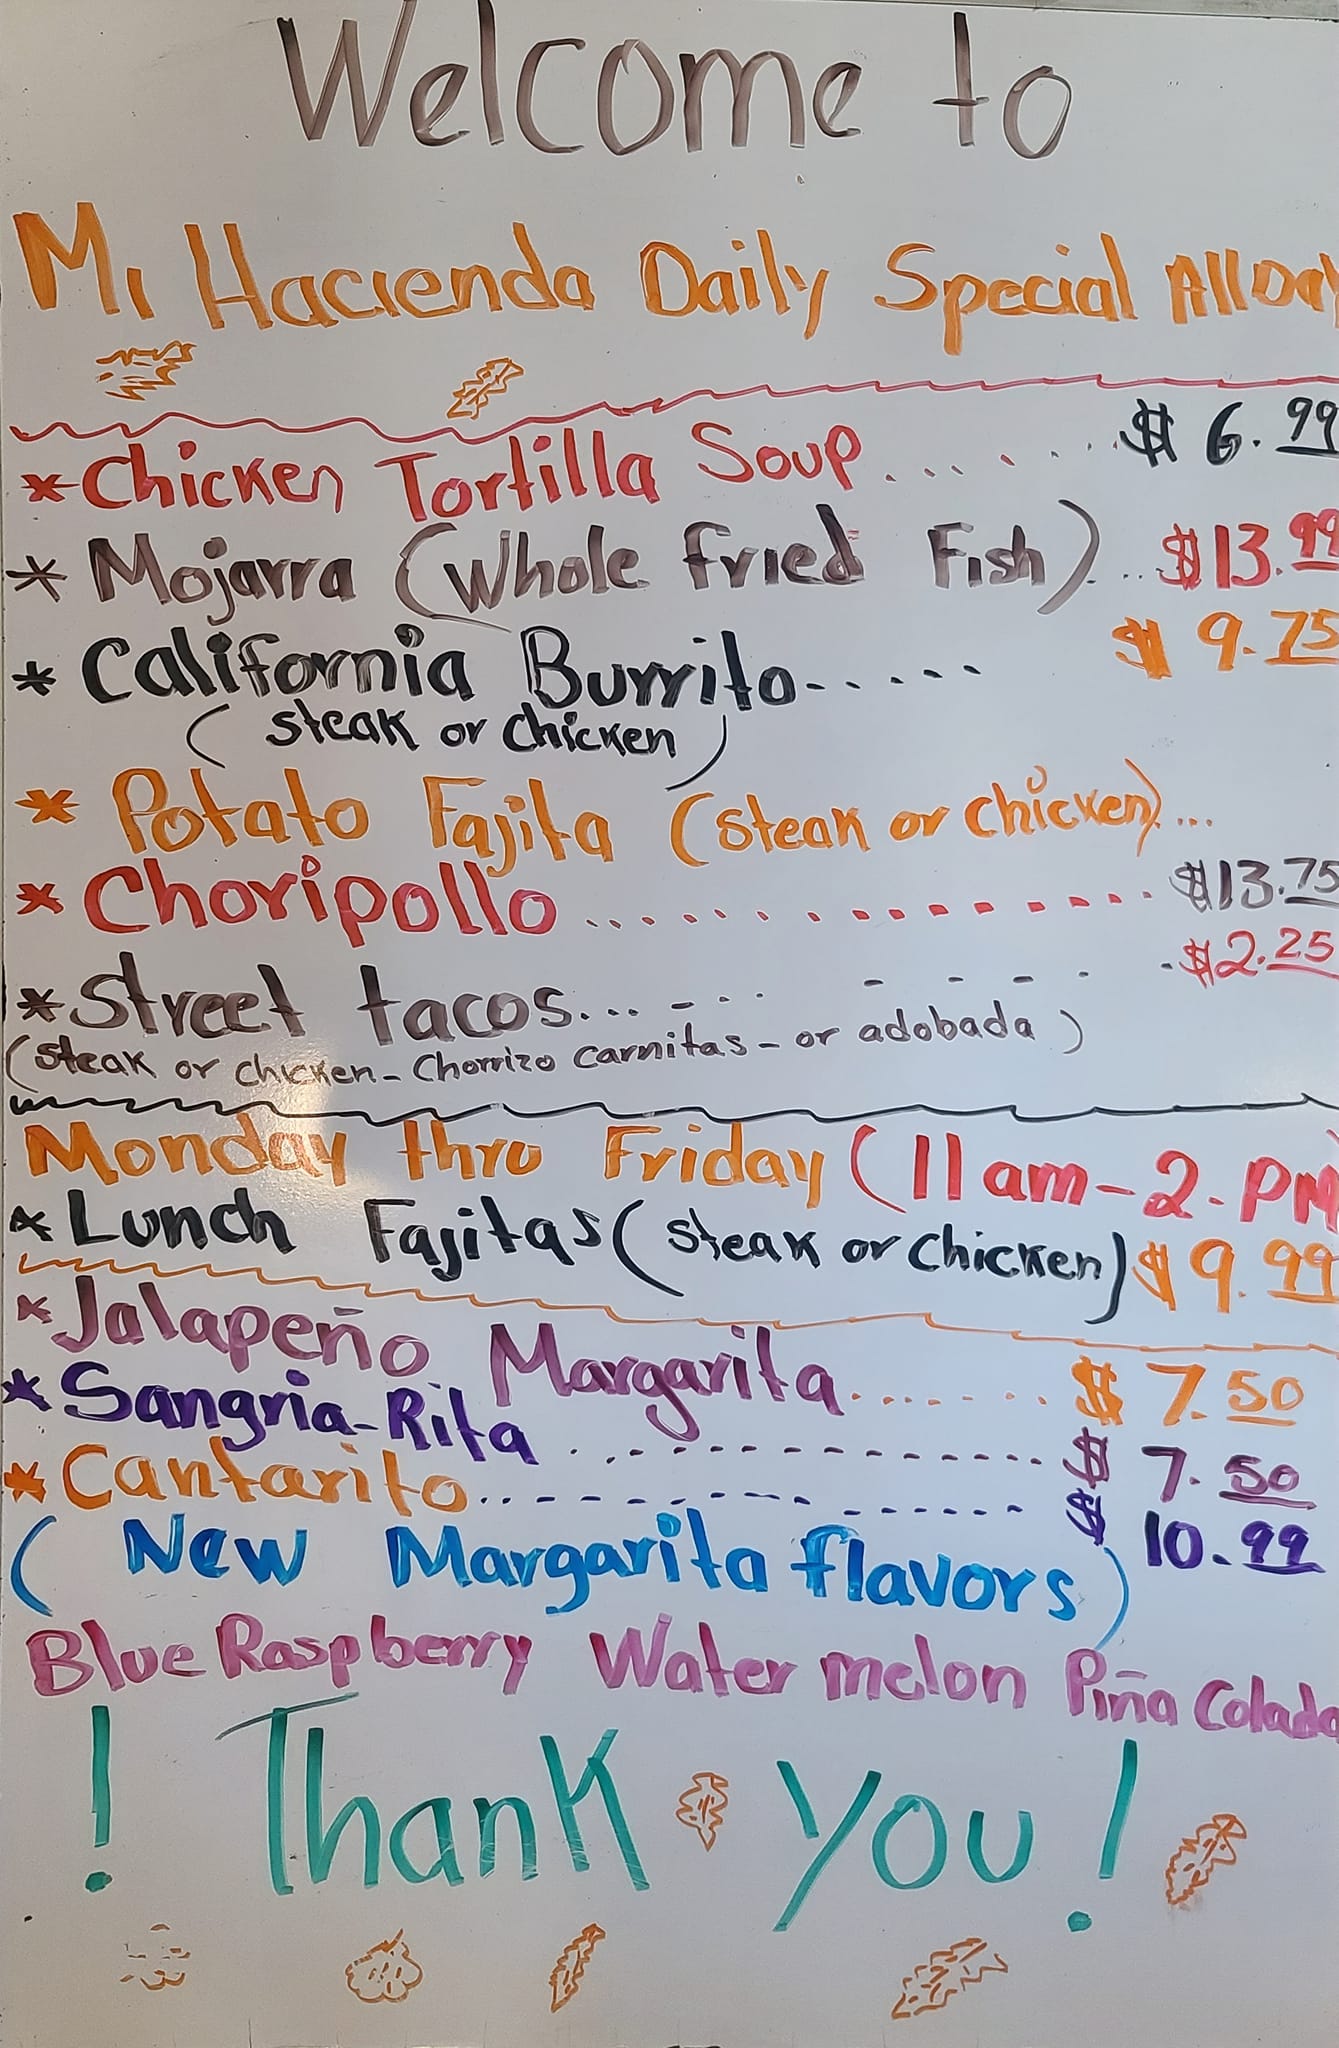 Welcome to
Mi Hacienda Daily Special All Day
* Chicken Tortilla Soup..... $ 6.99
* Mojarra (Whole fried Fish)... $13.99
* California Burrito..... $ 9.75
(steak or chicken)
* Potato Fajita (steak or chicken)...
* Choripollo ............... $13.75
* Street tacos... - - - - - - $2.25
(steak or chicken - Chorrizo carnitas - or adobada)
Monday thru Friday (11 am - 2 - PM
* Lunch Fajitas (steak or chicken) $ 9.99
* Jalapeño Margarita....... $ 7.50
* Sangria-Rita ............ $ 7.50
* Cantarito............ $ 10.99
(New Margarita flavors)
Blue Raspberry Water melon Piña Colada
! Thank you !